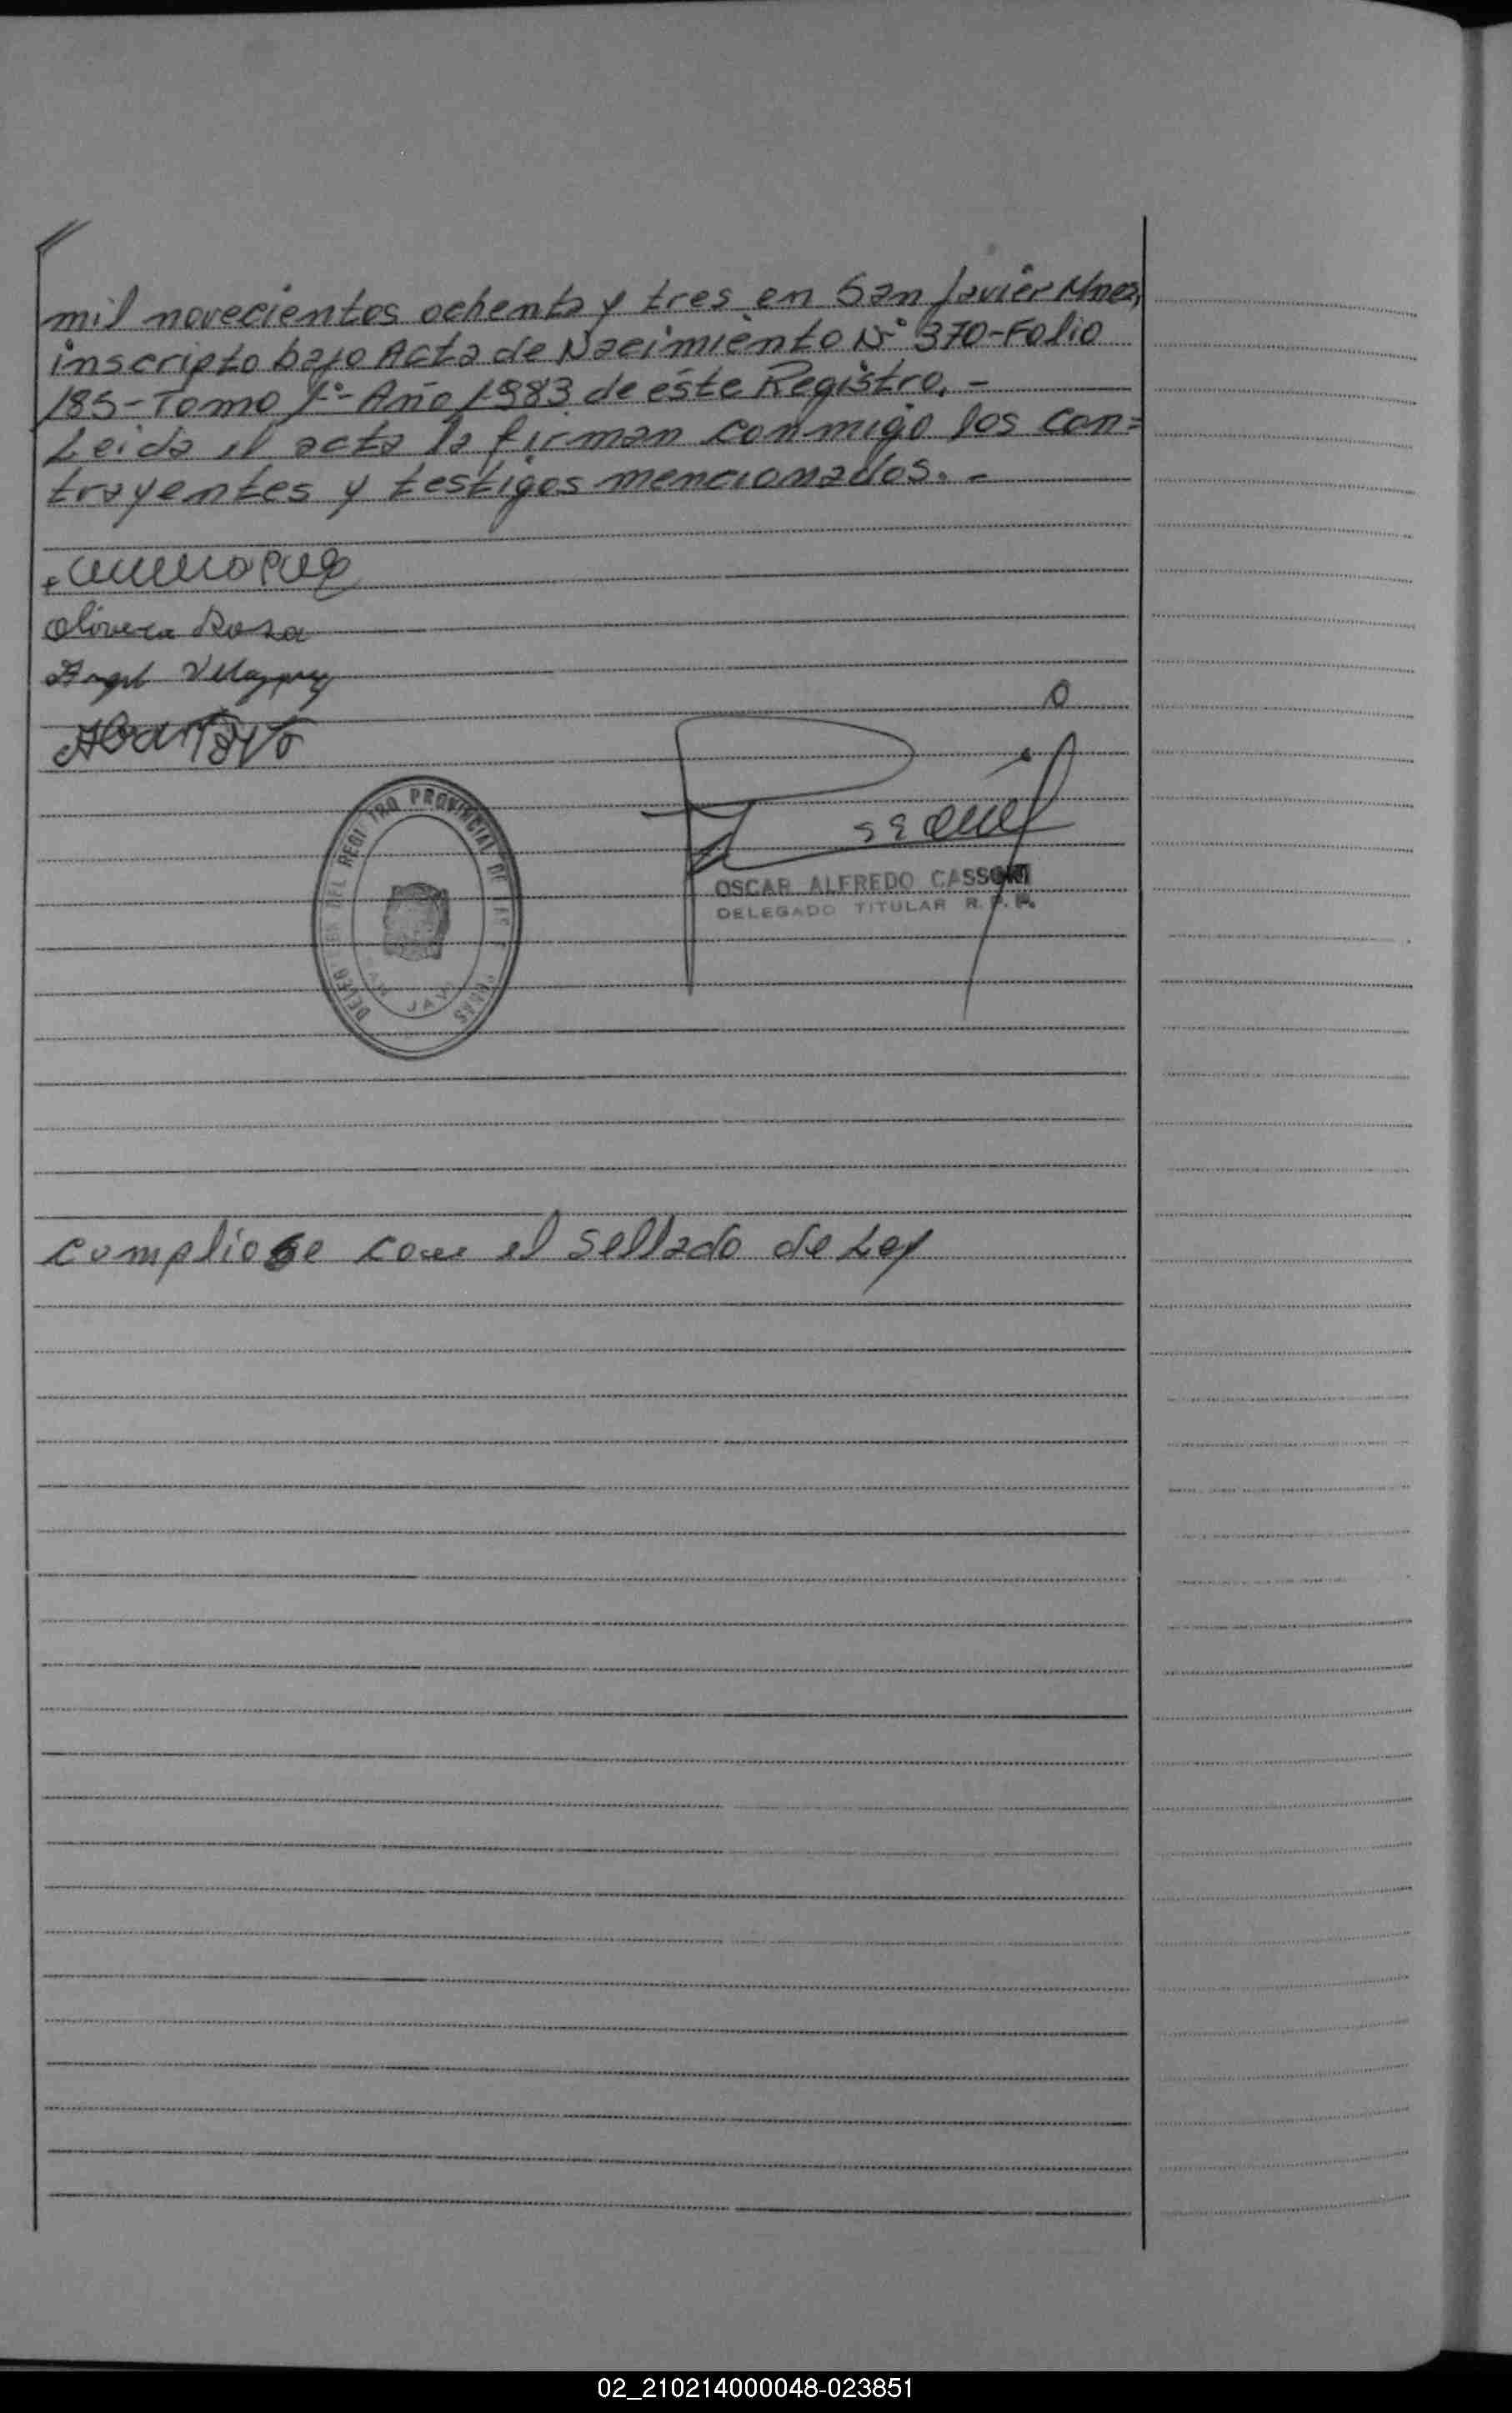 mil novecientos ochenta y tres en San Javier Mnes,
inscripto bajo Acta de Nacimiento Nº 370-Folio
185-Tomo 1º-Año 1983 de éste Registro.-
Leida el acta la firman conmigo los con=
trayentes y testigos mencionados.-
Olivera Rosa
Angel Velazquez
OSCAR ALFREDO CASSONI
DELEGADO TITULAR R. P. P.
DEL REGISTRO PROVINCIAL DE LAS PERSONAS
SAN JAVIER
cumpliose con el sellado de Ley
02_210214000048-023851